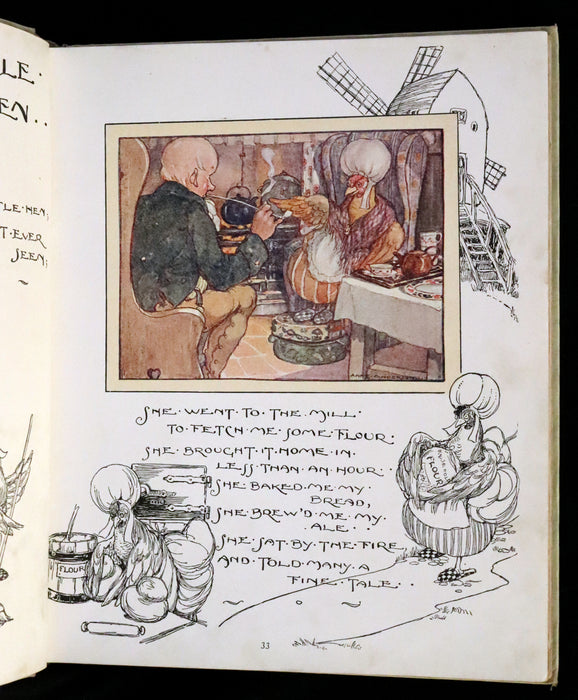 LE·
EN..
TLE·HEN;
T·EVER
SEEN;
ANNE·ANDERSON
SHE·WENT·TO·THE·MILL·
TO·FETCH·ME·SOME·FLOUR:
SHE·BROUGHT·IT·HOME·IN·
LESS·THAN·AN·HOUR··
SHE·BAKED·ME·MY·
BREAD,
SHE·BREW'D·ME·MY·
ALE·
SHE·SAT·BY·THE·FIRE,
AND·TOLD·MANY·A
FINE·TALE··
FLOUR
FLOUR
33